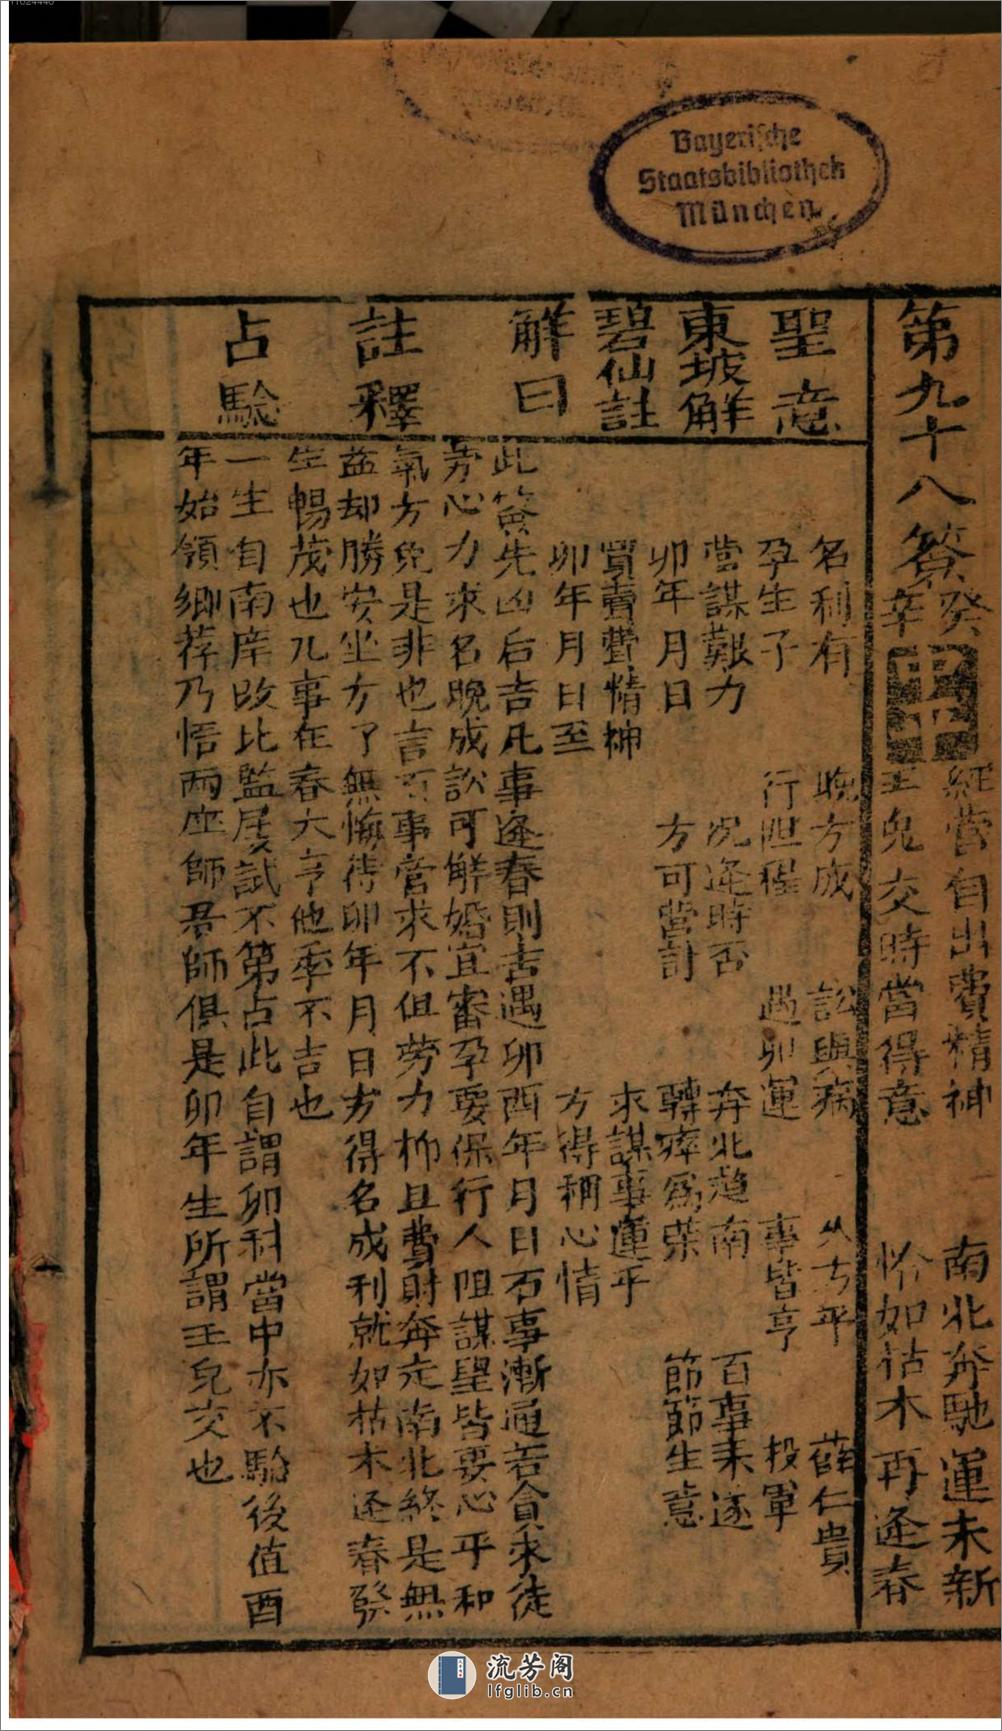 Bayerische
Staatsbibliothek
München
第九十八簽
癸辛
中平
經營自出費精神 南北奔馳運未新
玉兔交時當得意 恰如枯木再逢春
聖意
名利有 晚方成 訟與病 久方平 薛仁貴
孕生子 行阻程 過卯運 事皆亨 投軍
東坡解
營謀艱力 況逢時否 奔北趨南 百事未遂
卯年月日 方可營計 轉瘁為榮 節節生意
碧仙註
買賣費精神 求謀事運平
卯年月日至 方得稱心情
解曰
此簽先凶后吉凡事逢春則吉遇卯酉年月日百事漸通若貪求徒
勞心力求名晚成訟可解婚宜審孕要保行人阻謀望皆要心平和
氣方免是非也言百事營求不但勞力抑且費財奔走南北終是無
註釋
益却勝安坐方了無悔待卯年月日方得名成利就如枯木逢春發
生暢茂也凡事在春大亨他季不吉也
占驗
一生自南庠改北監屢試不第占此自謂卯科當中亦不驗後值酉
年始領鄉荐乃悟兩座師君師俱是卯年生所謂玉兔交也
流芳阁
lfglib.cn